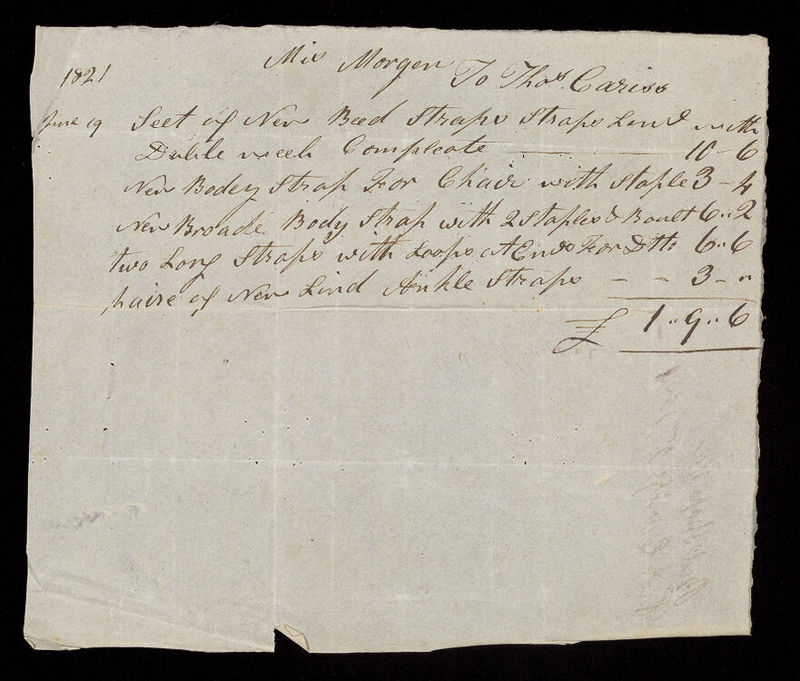 1821 Mis Morgen To Thos Cariss
June 19 Seet of New Beed Straps Straps Lind with
Duble neck Compleate 10 - 6
New Bodey Strap For Chair with Staple 3 - 4
New Broade Body Strap with 2 Staples & Boult 6 .. 2
two Long Straps with Loops at Ends For Dtto 6 .. 6
paire of New Lind Ankle Straps - - 3 - "
£ 1 .. 9 .. 6